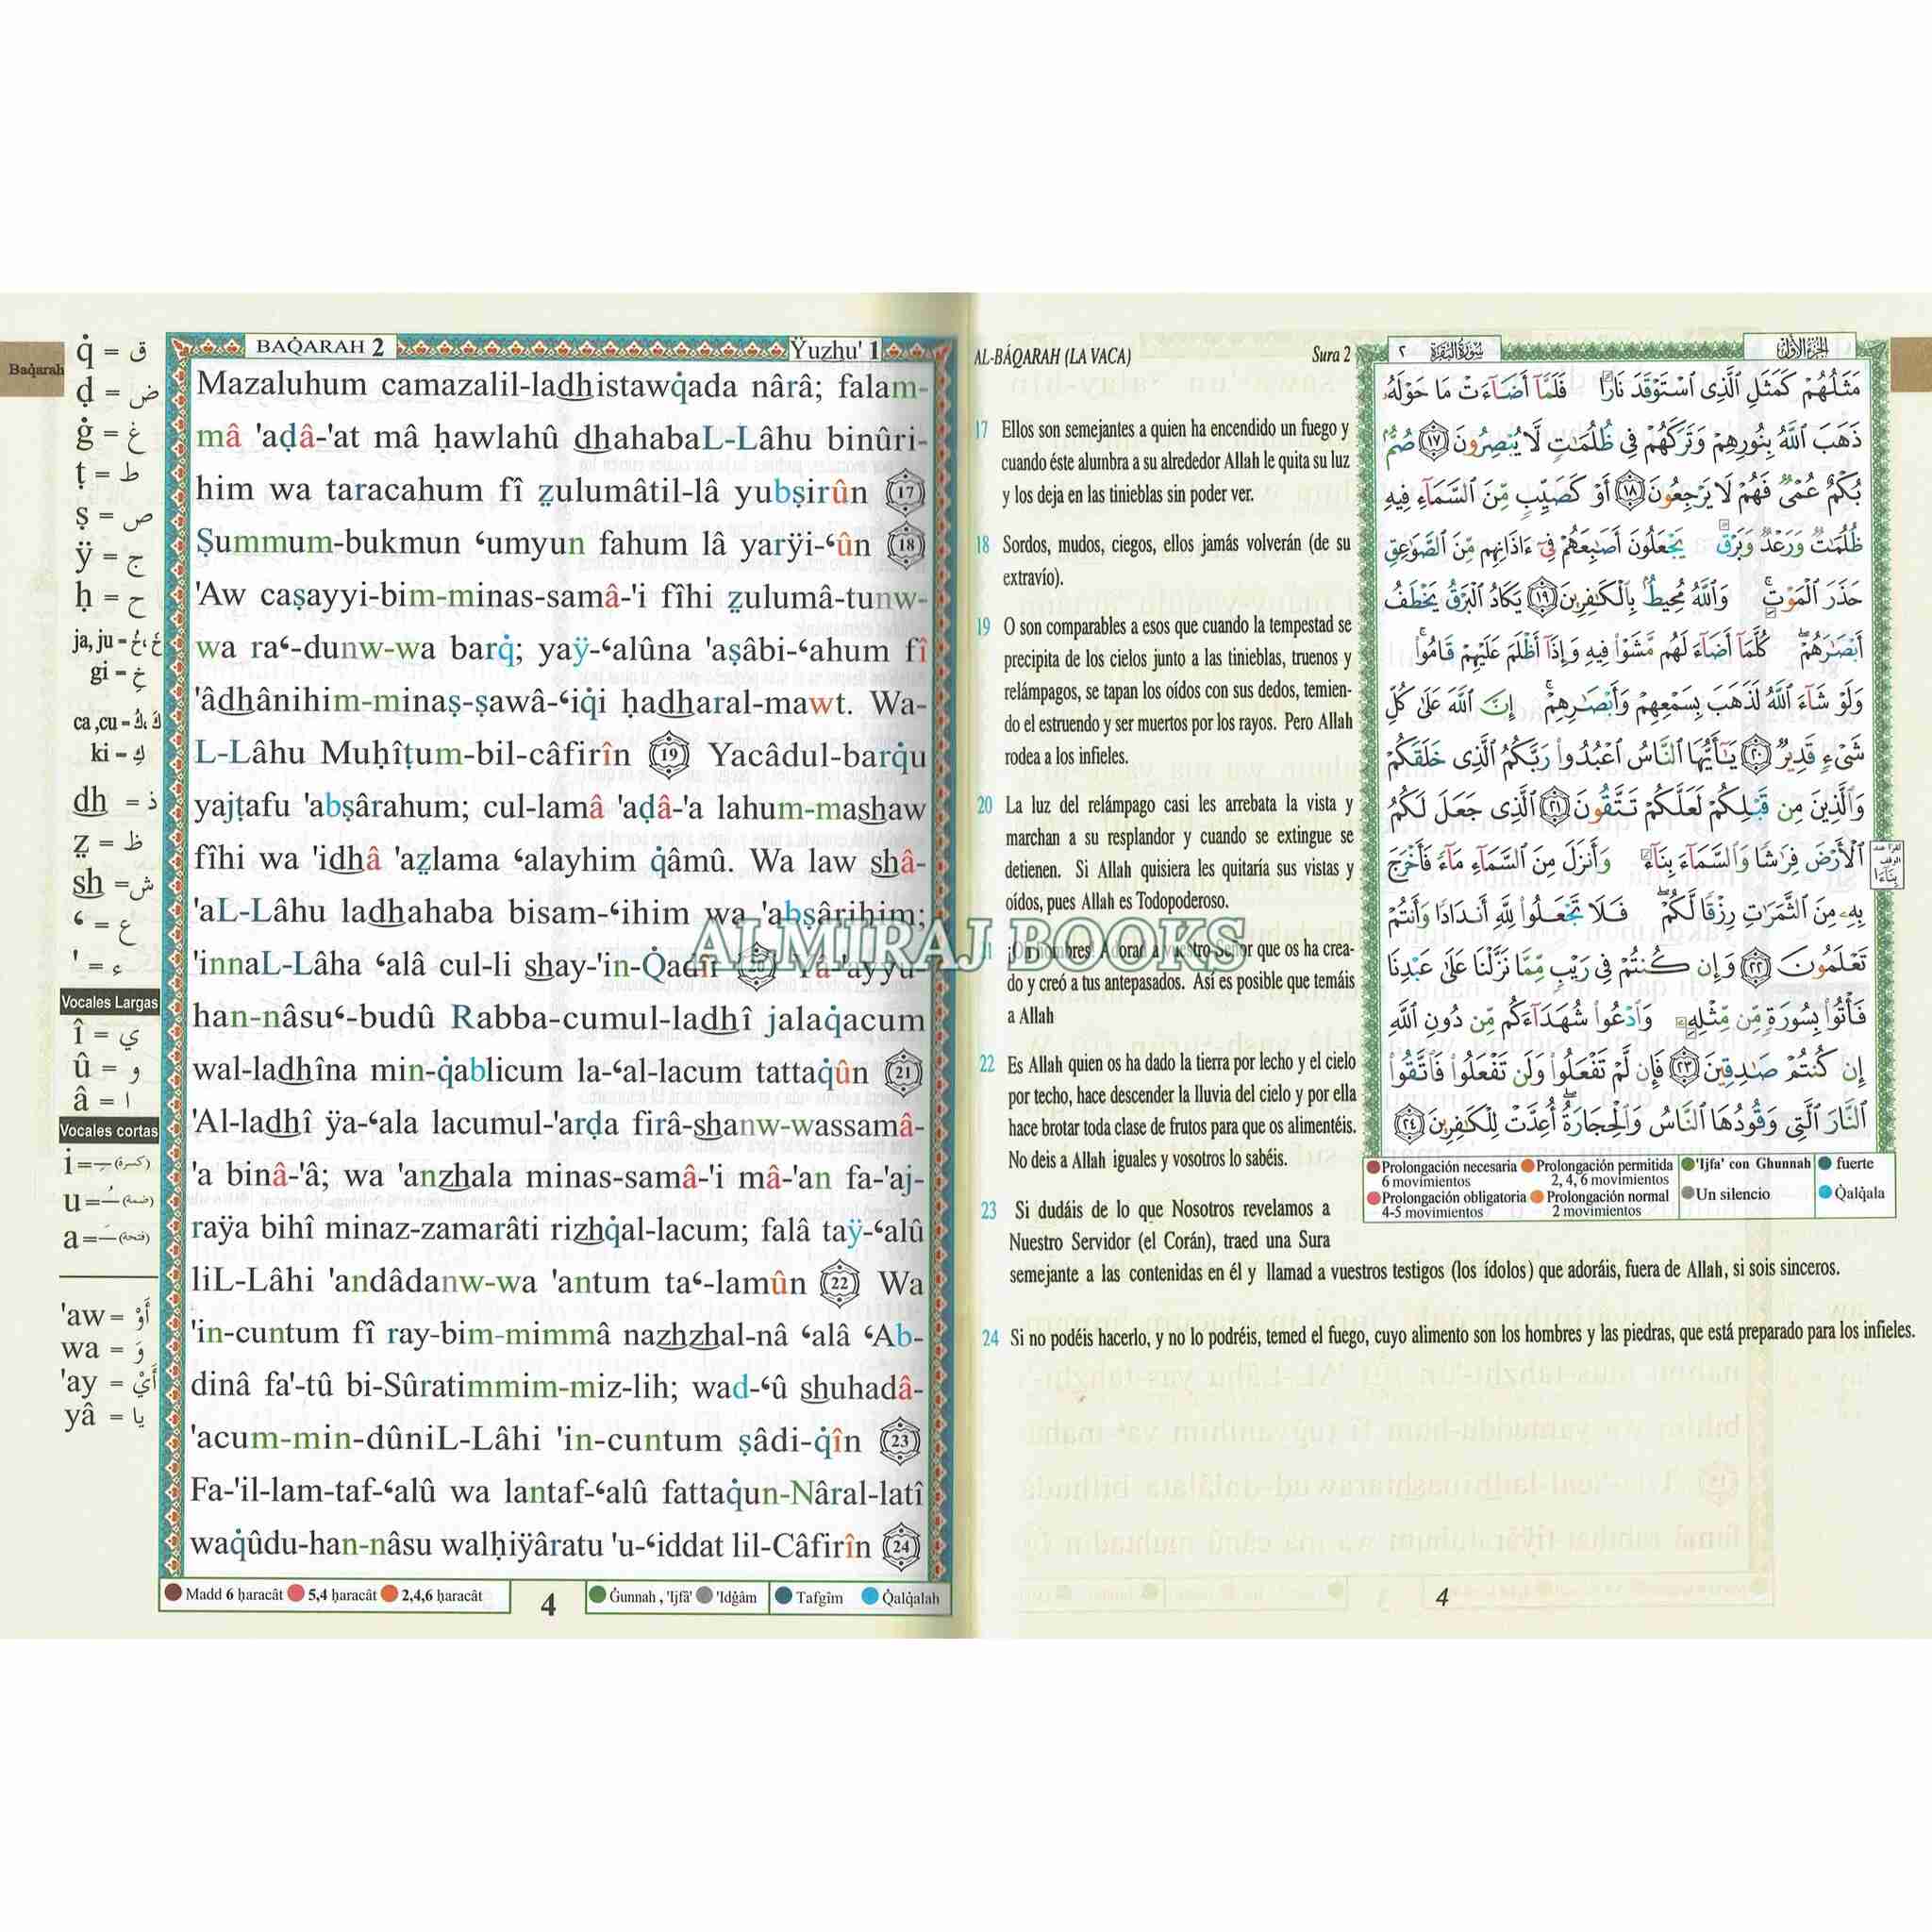 Baqarah
q̇ = ق
ḍ = ض
ġ = غ
ṭ = ط
ṣ = ص
ÿ = ج
ḥ = ح
ja, ju - خَ، خُ
gi - خِ
ca ,cu - كَ، كُ
ki - كِ
dh = ذ
ẓ = ظ
sh = ش
ʻ = ع
' = ء
Vocales Largas
î = ي
û = و
â = ا
Vocales cortas
i = ـِ (كسرة)
u = ـُ (ضمة)
a = ـَ (فتحة)
'aw = أَوْ
wa = وَ
'ay = أَيْ
yâ = يا
BAQ̇ARAH 2
Ÿuzhu' 1
Mazaluhum camazalil-ladhistawq̇ada nârâ; falam-
mâ 'aḍâ-'at mâ ḥawlahû dhahabaL-Lâhu binûri-
him wa taracahum fî ẓulumâtil-lâ yubṣirûn 17
Ṣummum-bukmun ʻumyun fahum lâ yarÿi-ʻûn 18
'Aw caṣayyi-bim-minas-samâ-'i fîhi ẓulumâ-tunw-
wa raʻ-dunw-wa barq̇; yaÿ-ʻalûna 'aṣâbi-ʻahum fî
'âdhânihim-minaṣ-ṣawâ-ʻiq̇i ḥadharal-mawt. Wa-
L-Lâhu Muḥîṭum-bil-câfirîn 19 Yacâdul-barq̇u
yajṭafu 'abṣârahum; cul-lamâ 'aḍâ-'a lahum-mashaw
fîhi wa 'idhâ 'aẓlama ʻalayhim q̇âmû. Wa law shâ-
'aL-Lâhu ladhahaba bisam-ʻihim wa 'abṣârihim;
'innaL-Lâha ʻalâ cul-li shay-'in-Q̇adîr 20 Yâ-'ayyu-
han-nâsuʻ-budû Rabba-cumul-ladhî jalaq̇acum
wal-ladhîna min-q̇ablicum la-ʻal-lacum tattaq̇ûn 21
'Al-ladhî ÿa-ʻala lacumul-'arḍa firâ-shanw-wassamâ-
'a binâ-'â; wa 'anzhala minas-samâ-'i mâ-'an fa-'aj-
raÿa bihî minaz-zamarâti rizhq̇al-lacum; falâ taÿ-ʻalû
liL-Lâhi 'andâdanw-wa 'antum taʻ-lamûn 22 Wa
'in-cuntum fî ray-bim-mimmâ nazhzhal-nâ ʻalâ ʻAb-
dinâ fa'-tû bi-Sûratimmim-miz-lih; wad-ʻû shuhadâ-
'acum-min-dûniL-Lâhi 'in-cuntum ṣâdi-q̇în 23
Fa-'il-lam-taf-ʻalû wa lantaf-ʻalû fattaq̇un-Nâral-latî
waq̇ûdu-han-nâsu walḥiÿâratu 'u-ʻiddat lil-Câfirîn 24
Madd 6 ḥaracât 5,4 ḥaracât 2,4,6 ḥaracât
4
Ġunnah , 'Ijfâ' 'Idġâm Tafgîm Q̇alq̇alah
AL-BÁQARAH (LA VACA) Sura 2
17 Ellos son semejantes a quien ha encendido un fuego y
cuando éste alumbra a su alrededor Allah le quita su luz
y los deja en las tinieblas sin poder ver.
18 Sordos, mudos, ciegos, ellos jamás volverán (de su
extravío).
19 O son comparables a esos que cuando la tempestad se
precipita de los cielos junto a las tinieblas, truenos y
relámpagos, se tapan los oídos con sus dedos, temien-
do el estruendo y ser muertos por los rayos. Pero Allah
rodea a los infieles.
20 La luz del relámpago casi les arrebata la vista y
marchan a su resplandor y cuando se extingue se
detienen. Si Allah quisiera les quitaría sus vistas y
oídos, pues Allah es Todopoderoso.
ALMIRAJ BOOKS
21 ¡Oh hombres! Adorad a vuestro Señor que os ha crea-
do y creó a tus antepasados. Así es posible que temáis
a Allah
22 Es Allah quien os ha dado la tierra por lecho y el cielo
por techo, hace descender la lluvia del cielo y por ella
hace brotar toda clase de frutos para que os alimentéis.
No deis a Allah iguales y vosotros lo sabéis.
23 Si dudáis de lo que Nosotros revelamos a
Nuestro Servidor (el Corán), traed una Sura
semejante a las contenidas en él y llamad a vuestros testigos (los ídolos) que adoráis, fuera de Allah, si sois sinceros.
24 Si no podéis hacerlo, y no lo podréis, temed el fuego, cuyo alimento son los hombres y las piedras, que está preparado para los infieles.
الجزء الأول
سورة البقرة ٢
مَثَلُهُمْ كَمَثَلِ ٱلَّذِى ٱسْتَوْقَدَ نَارًا فَلَمَّآ أَضَآءَتْ مَا حَوْلَهُۥ
ذَهَبَ ٱللَّهُ بِنُورِهِمْ وَتَرَكَهُمْ فِى ظُلُمَٰتٍ لَّا يُبْصِرُونَ ١٧ صُمٌّۢ
بُكْمٌ عُمْىٌ فَهُمْ لَا يَرْجِعُونَ ١٨ أَوْ كَصَيِّبٍ مِّنَ ٱلسَّمَآءِ فِيهِ
ظُلُمَٰتٌ وَرَعْدٌ وَبَرْقٌ يَجْعَلُونَ أَصَٰبِعَهُمْ فِىٓ ءَاذَانِهِم مِّنَ ٱلصَّوَٰعِقِ
حَذَرَ ٱلْمَوْتِ ۚ وَٱللَّهُ مُحِيطٌۢ بِٱلْكَٰفِرِينَ ١٩ يَكَادُ ٱلْبَرْقُ يَخْطَفُ
أَبْصَٰرَهُمْ ۖ كُلَّمَآ أَضَآءَ لَهُم مَّشَوْا۟ فِيهِ وَإِذَآ أَظْلَمَ عَلَيْهِمْ قَامُوا۟ ۚ
وَلَوْ شَآءَ ٱللَّهُ لَذَهَبَ بِسَمْعِهِمْ وَأَبْصَٰرِهِمْ ۚ إِنَّ ٱللَّهَ عَلَىٰ كُلِّ
شَىْءٍ قَدِيرٌ ٢٠ يَٰٓأَيُّهَا ٱلنَّاسُ ٱعْبُدُوا۟ رَبَّكُمُ ٱلَّذِى خَلَقَكُمْ
وَٱلَّذِينَ مِن قَبْلِكُمْ لَعَلَّكُمْ تَتَّقُونَ ٢١ ٱلَّذِى جَعَلَ لَكُمُ
ٱلْأَرْضَ فِرَٰشًا وَٱلسَّمَآءَ بِنَآءً وَأَنزَلَ مِنَ ٱلسَّمَآءِ مَآءً فَأَخْرَجَ
بِهِۦ مِنَ ٱلثَّمَرَٰتِ رِزْقًا لَّكُمْ ۖ فَلَا تَجْعَلُوا۟ لِلَّهِ أَندَادًا وَأَنتُمْ
تَعْلَمُونَ ٢٢ وَإِن كُنتُمْ فِى رَيْبٍ مِّمَّا نَزَّلْنَا عَلَىٰ عَبْدِنَا
فَأْتُوا۟ بِسُورَةٍ مِّن مِّثْلِهِۦ وَٱدْعُوا۟ شُهَدَآءَكُم مِّن دُونِ ٱللَّهِ
إِن كُنتُمْ صَٰدِقِينَ ٢٣ فَإِن لَّمْ تَفْعَلُوا۟ وَلَن تَفْعَلُوا۟ فَٱتَّقُوا۟
ٱلنَّارَ ٱلَّتِى وَقُودُهَا ٱلنَّاسُ وَٱلْحِجَارَةُ ۖ أُعِدَّتْ لِلْكَٰفِرِينَ ٢٤
Prolongación necesaria Prolongación permitida 'Ijfa' con Ghunnah fuerte
6 movimientos 2, 4, 6 movimientos
Prolongación obligatoria Prolongación normal Un silencio Q̇alq̇ala
4-5 movimientos 2 movimientos
4